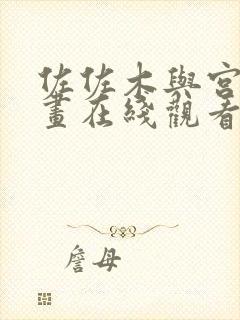 佐佐木與宮
畫在綫觀看
詹母